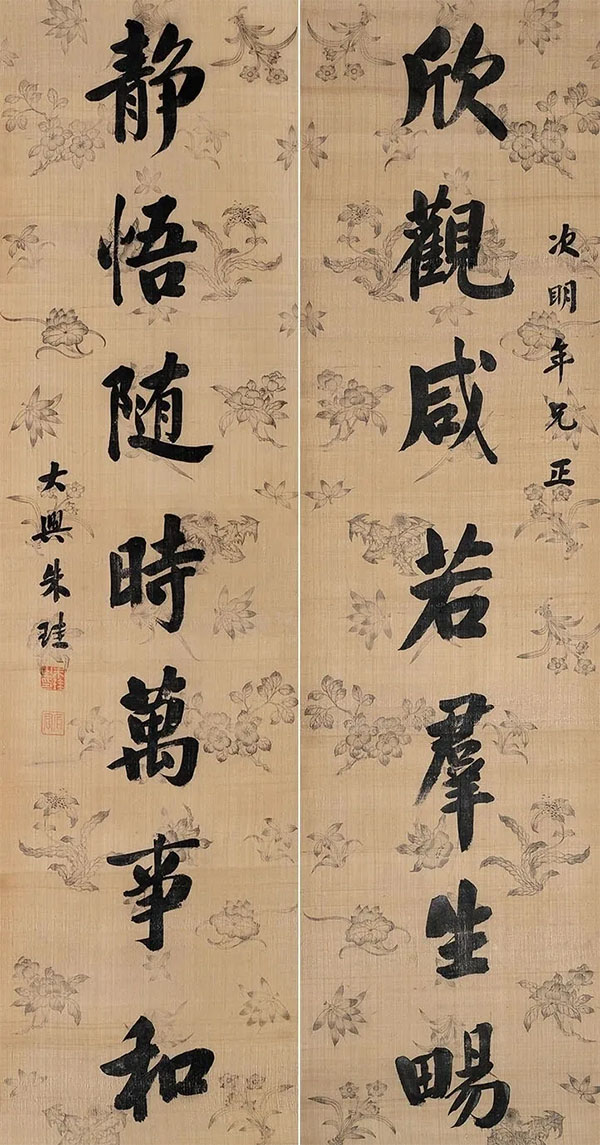 次明年兄正
欣觀咸若羣生畼
静悟随時萬事和
大興朱珪